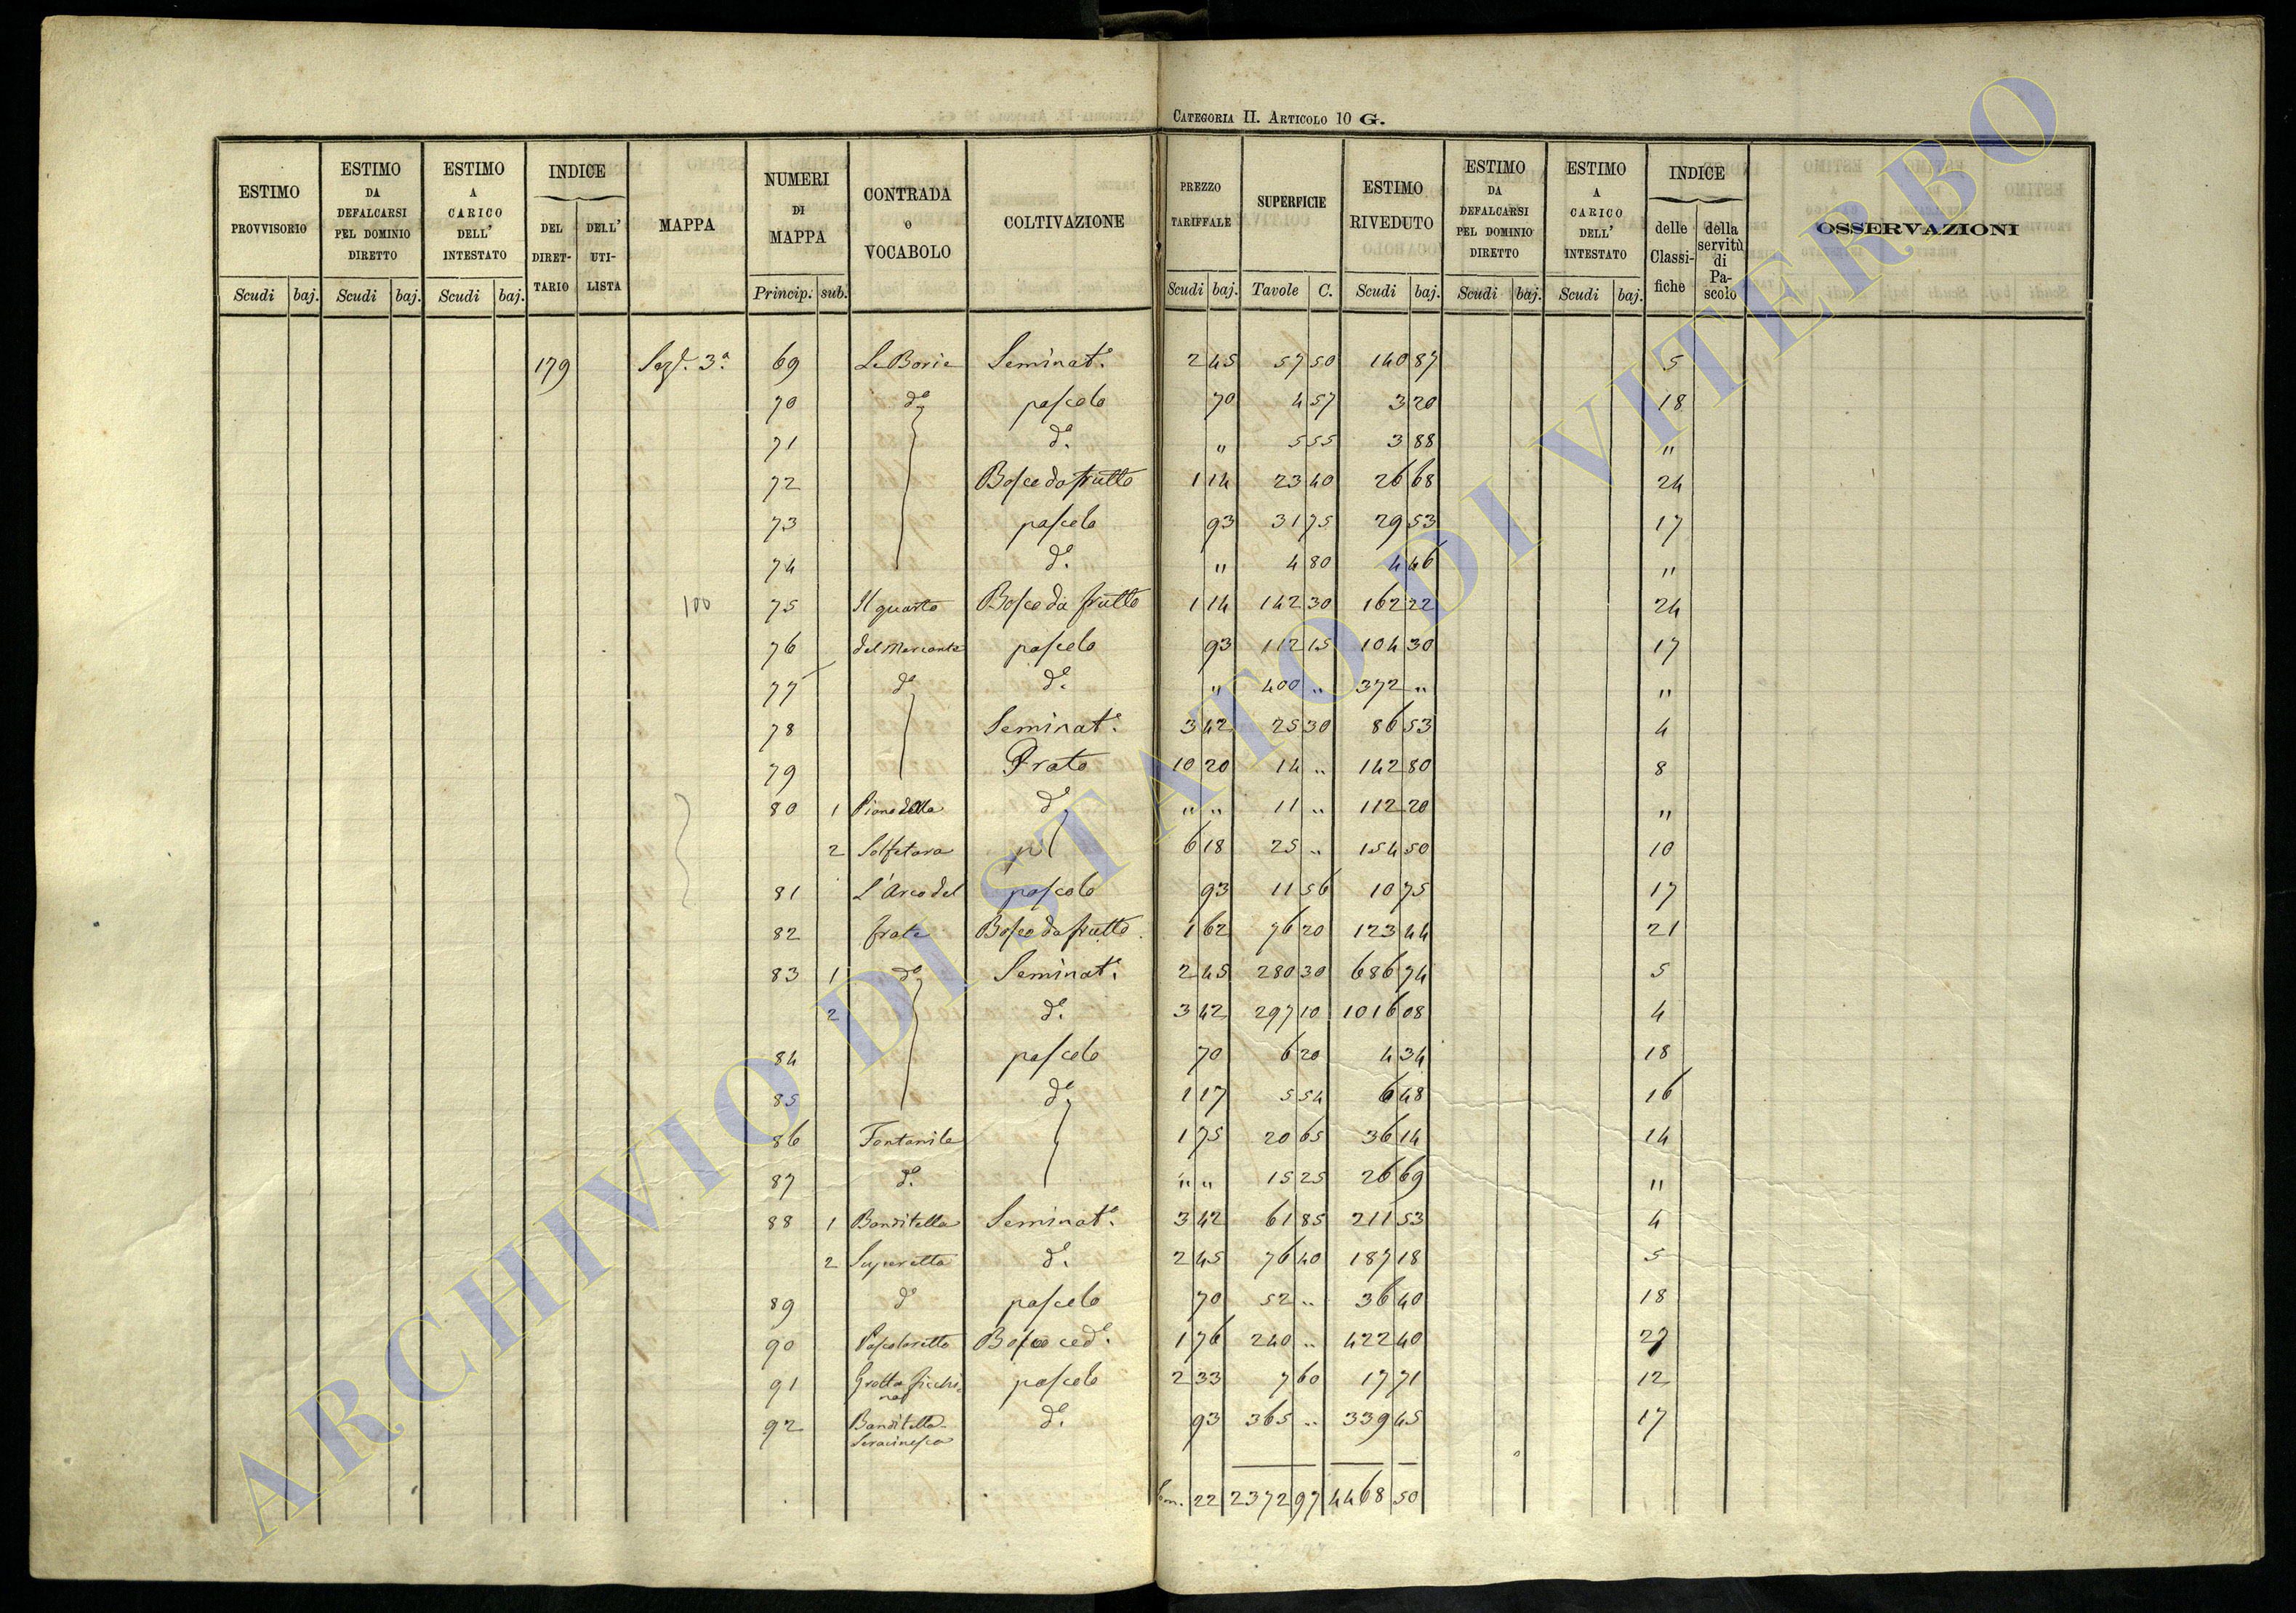 CATEGORIA II. ARTICOLO 10 G.
ESTIMO PROVVISORIO | ESTIMO DA DEFALCARSI PEL DOMINIO DIRETTO | ESTIMO A CARICO DELL' INTESTATO | INDICE | MAPPA | NUMERI DI MAPPA | CONTRADA O VOCABOLO | COLTIVAZIONE | PREZZO TARIFFALE | SUPERFICIE | ESTIMO RIVEDUTO | ESTIMO DA DEFALCARSI PEL DOMINIO DIRETTO | ESTIMO A CARICO DELL' INTESTATO | INDICE | OSSERVAZIONI
DEL DIRETTARIO | DELL' UTILISTA | delle Classifiche | della servitù di Pascolo
Scudi | baj. | Scudi | baj. | Scudi | baj. | Princip. | sub. | Scudi | baj. | Tavole | C. | Scudi | baj. | Scudi | baj. | Scudi | baj.
179 | Sez.e 3.a | 69 | Le Borie | Seminat.o | 2 45 | 57 50 | 140 87 | 5
70 | do | pascolo | 70 | 4 57 | 3 20 | 18
71 | do. | " | 5 55 | 3 88 | "
72 | Bosco da frutto | 1 14 | 23 40 | 26 68 | 24
73 | pascolo | 93 | 31 75 | 29 53 | 17
74 | do. | " | 4 80 | 4 46 | "
100 | 75 | Il quarto | Bosco da frutto | 1 14 | 142 30 | 162 22 | 24
76 | del Mercante | pascolo | 93 | 112 15 | 104 30 | 17
77 | do | do. | " | 400 " | 372 " | "
78 | Seminat.o | 3 42 | 25 30 | 86 53 | 4
79 | Prato | 10 20 | 14 " | 142 80 | 8
80 | 1 | Piano della | do | " " | 11 " | 112 20 | "
2 | Solfatara | 6 18 | 25 " | 154 50 | 10
81 | L'Arco del | pascolo | 93 | 11 56 | 10 75 | 17
82 | frate | Bosco da frutto | 1 62 | 76 20 | 123 44 | 21
83 | 1 | do | Seminat.o | 2 45 | 280 30 | 686 74 | 5
2 | do. | 3 42 | 297 10 | 1016 08 | 4
84 | pascolo | 70 | 6 20 | 4 34 | 18
85 | do | 1 17 | 5 54 | 6 48 | 16
86 | Fontanile | 1 75 | 20 65 | 36 14 | 14
87 | do. | " " | 15 25 | 26 69 | "
88 | 1 | Banditella | Seminat.o | 3 42 | 61 85 | 211 53 | 4
2 | Superetta | do. | 2 45 | 76 40 | 187 18 | 5
89 | do | pascolo | 70 | 52 " | 36 40 | 18
90 | Pascolaretto | Bosco ced.o | 1 76 | 240 " | 422 40 | 27
91 | Grotta | pascolo | 2 33 | 7 60 | 17 71 | 12
92 | Banditella | do. | 93 | 365 " | 339 45 | 17
Seracinesca
22 | 2372 97 | 4468 50
ARCHIVIO DI STATO DI VITERBO